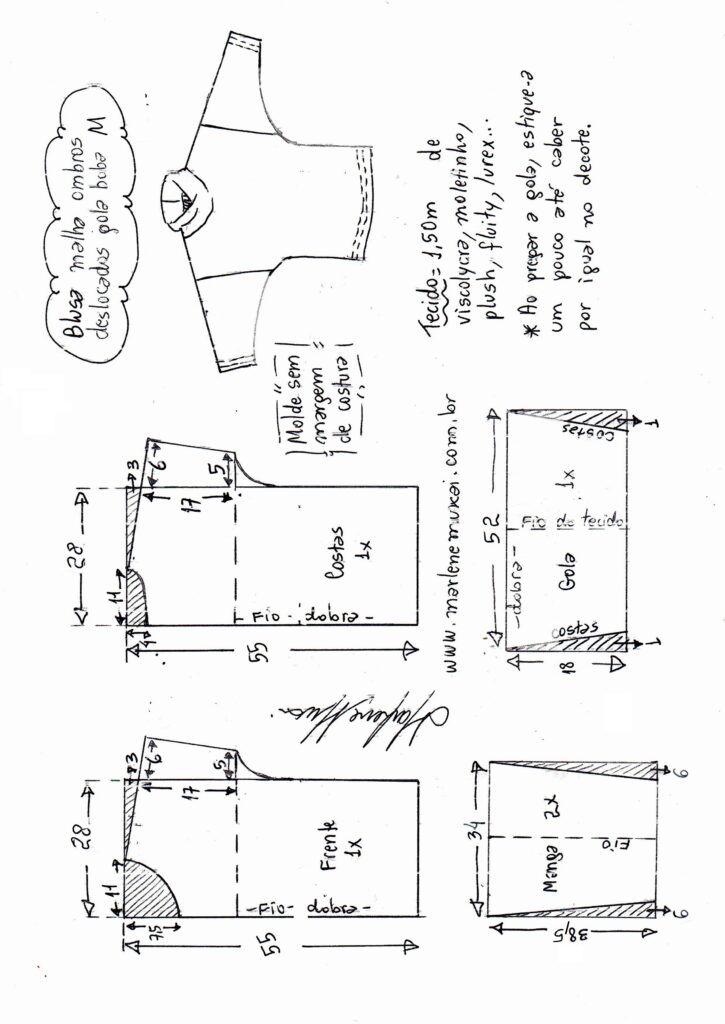 Blusa malha ombros
deslocados gola boba M
28
11
3
6
17
5
7,5
55
Frente
1x
-Fio- dobra-
28
11
3
6
17
5
4
55
Costas
1x
-Fio- dobra-
Molde sem
margem
de costura
34
Manga 2x
Fio
38,5
6
6
www.marlenemukai.com.br
52
-dobra-
Gola 1x
Fio do tecido
costas
costas
18
1
1
Tecido = 1,50m de
viscolycra, moletinho,
plush, fluity, lurex...
* Ao prepar a gola, estique-a
um pouco até caber
por igual no decote.